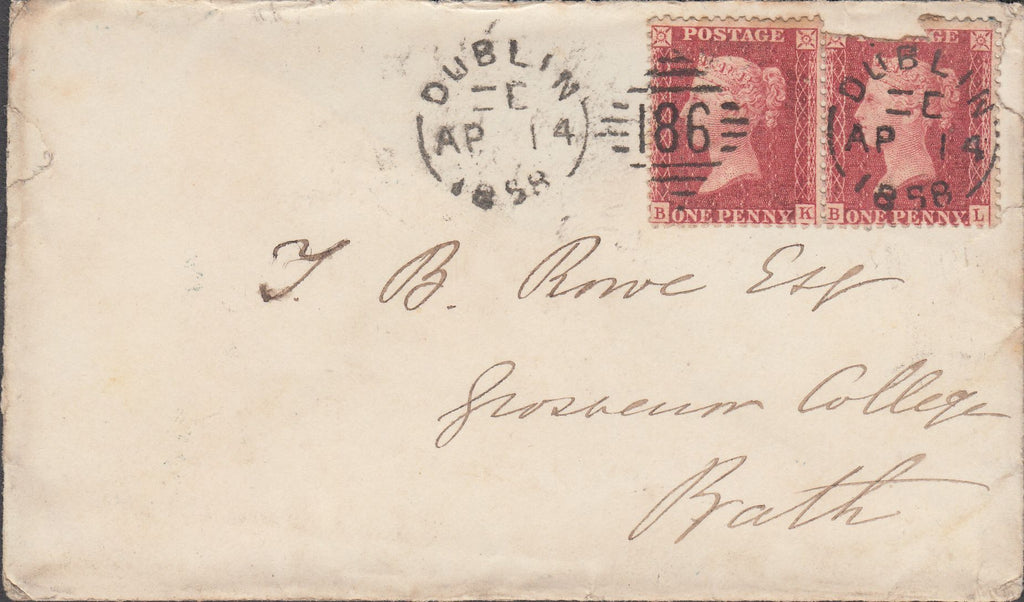 DUBLIN
E
AP 14
1858
186
POSTAGE
B ONE PENNY K
GE
B ONE PENNY L
DUBLIN
E
AP 14
1858
T. B. Rowe Esq
Grosvenor College
Bath